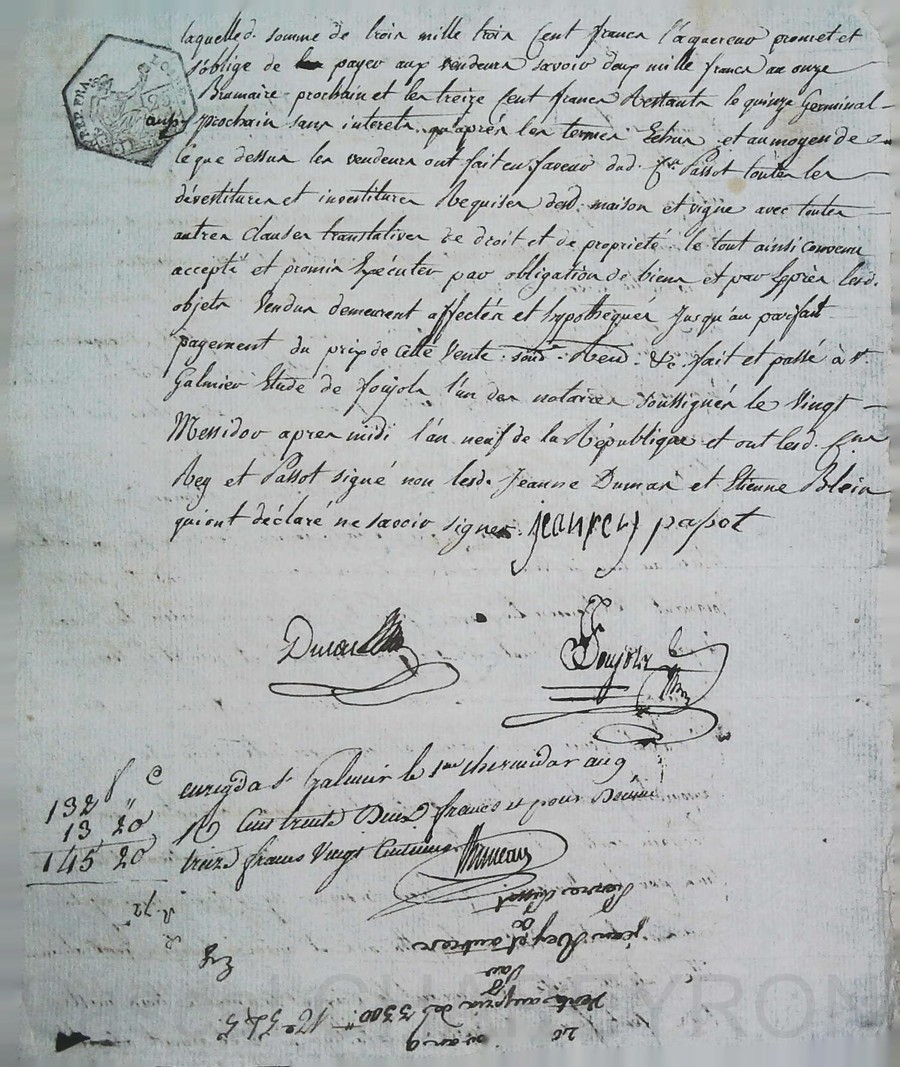 laquelle d. somme de trois mille trois cent francs l'aquereur promet et
s'oblige de payer aux vendeurs savoir deux mille francs au onze
Brumaire prochain et les treize cent francs Restants le quinze Germinal
aussy prochain sans interets qu'après les termes Echus et au moyen de
ce que dessus les vendeurs ont fait en faveur dud. Passot toutes les
dévestitures et investitures Requises desd. maison et vigne avec toutes
autres clauses translatives de droit et de propriété le tout ainsi convenu
accepté et promis Exécuter par obligation de biens et par Exprès lesd.
objets Vendus demeurent affectés et hypothequés Jusqu'au parfait
payement du prix de cette vente &c. fait et passé à St.
Galmier Etude de Foujols l'un des notaires soussignés le Vingt
Messidor apres midi l'an neuf de la République et ont lesd.
Rey et Passot signé non lesd. Jeanne Dumas et Etienne Blein
qui ont déclaré ne savoir signer. jean rey papot
Foujols
enregistré a St Galmier le 1er thermidor an 9
132 f c
" Cent trente Deux francs et pour Décime
13 20
treize francs Vingt Centimes
145 20
R. 72
jean Rey et autres
a
Vente au prix de 3300
20 an 9